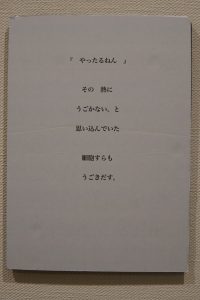 『　やったるねん　』
その　熱に
うごかない、と
思い込んでいた
細胞すらも
うごきだす。